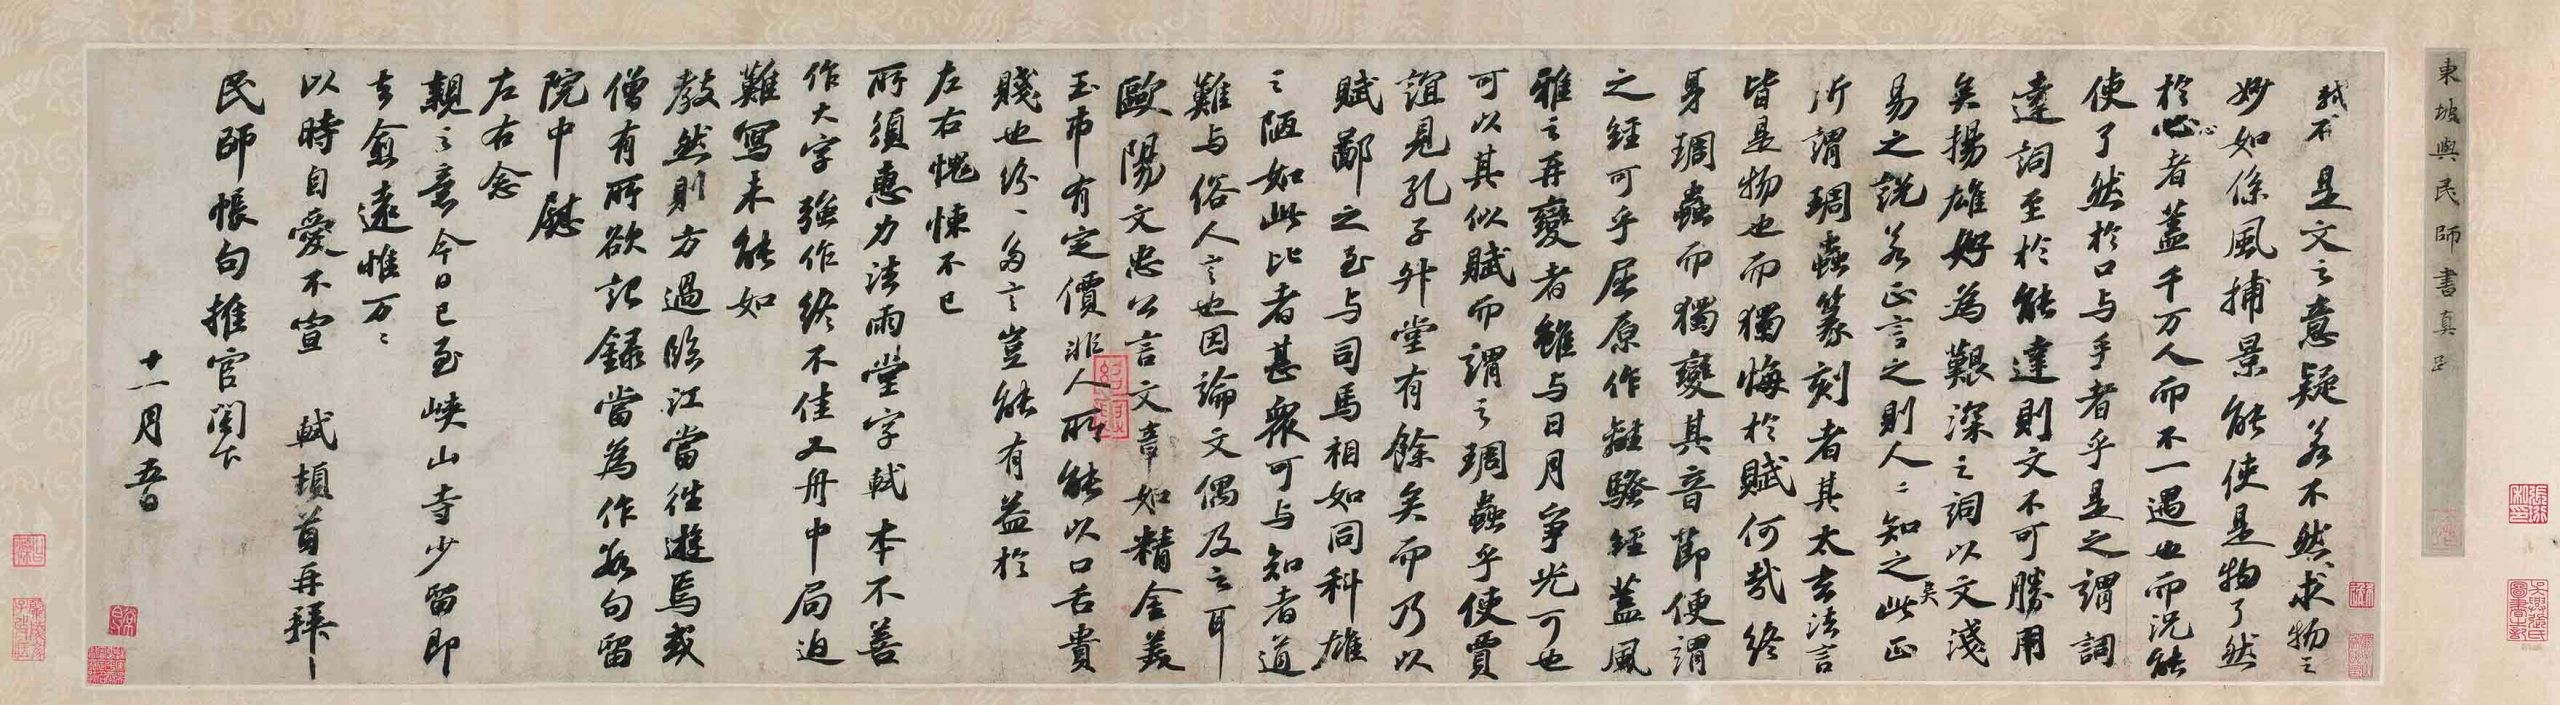 東坡與民師書真跡
是文之意疑若不然求物之
妙如係風捕景能使是物了然
於心者蓋千万人而不一遇也而況能
使了然於口与手者乎是之謂詞
達詞至於能達則文不可勝用
矣揚雄好為艱深之詞以文淺
易之說若正言之則人〻知之矣此正
所謂琱蟲篆刻者其太玄法言
皆是物也而獨悔於賦何哉終
身琱蟲而獨變其音節便謂
之經可乎屈原作離騷經蓋風
雅之再變者雖与日月爭光可也
可以其似賦而謂之琱蟲乎使賈
誼見孔子升堂有餘矣而乃以
賦鄙之至与司馬相如同科雄
之陋如此比者甚眾可与知者道
難与俗人言也因論文偶及之耳
歐陽文忠公言文章如精金美
玉市有定價非人所能以口舌貴
賤也紛〻多言豈能有益於
左右愧悚不已
所須惠力法雨堂字軾本不善
作大字強作終不佳又舟中局迫
難寫未能如
教然則方過臨江當往遊焉或
僧有所欲記錄當為作數句留
院中慰
左右念
親之意今日已至峽山寺少留即
去愈遠惟万〻
以時自愛不宣 軾頓首再拜
民師帳句推官閣下
十一月五日